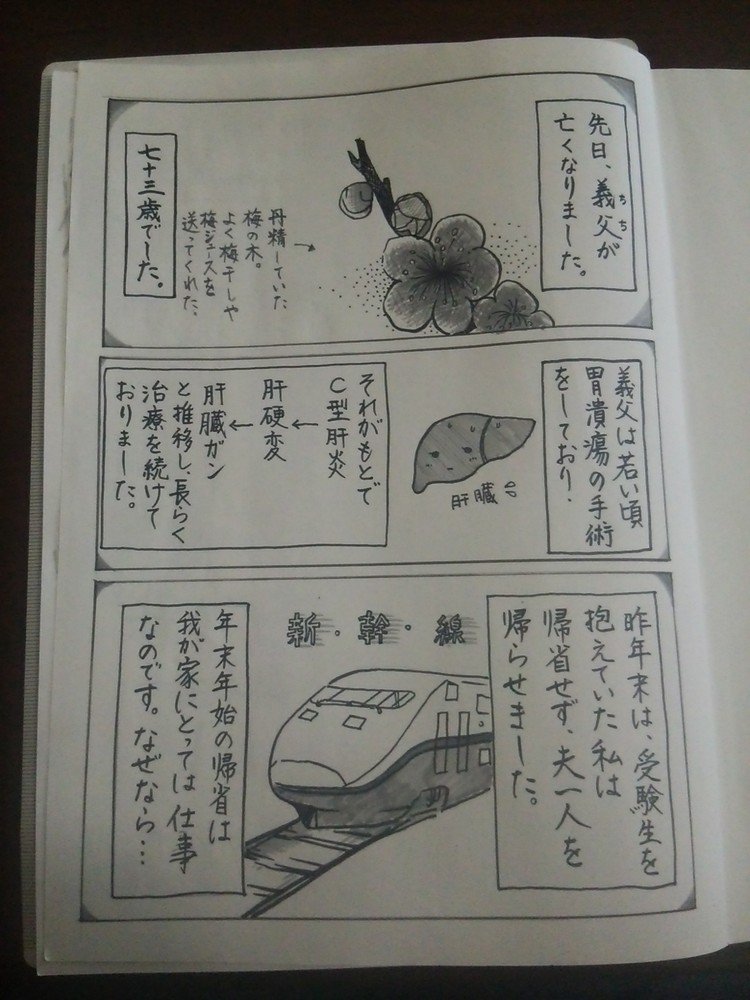 先日、義父が
ちち
亡くなりました。
丹精していた
梅の木。
よく梅干しや
梅ジュースを
送ってくれた、
七十三歳でした。
義父は若い頃
胃潰瘍の手術
をしており、
肝臓
それがもとで
C型肝炎
↓
肝硬変
↓
肝臓ガン
と推移し、長らく
治療を続けて
おりました。
昨年末は、受験生を
抱えていた私は
帰省せず、夫一人を
帰らせました。
新・幹・線
年末年始の帰省は
我が家にとっては仕事
なのです。なぜなら…